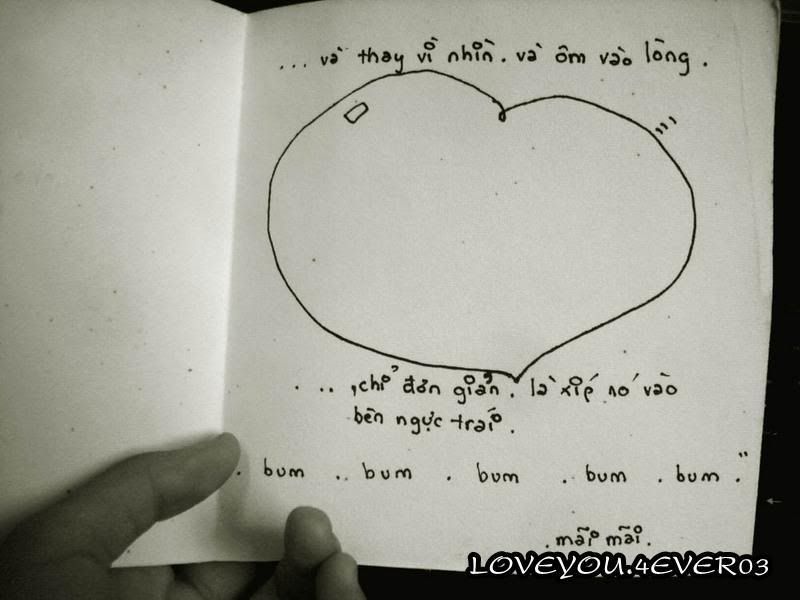 ... và thay vì nhìn. và ôm vào lòng.
... , chỉ đơn giản. là xiếp nó vào
bên ngực trái.
. bum .. bum . bum . bum . bum ."
. mãi mãi.
LOVEYOU.4EVER03